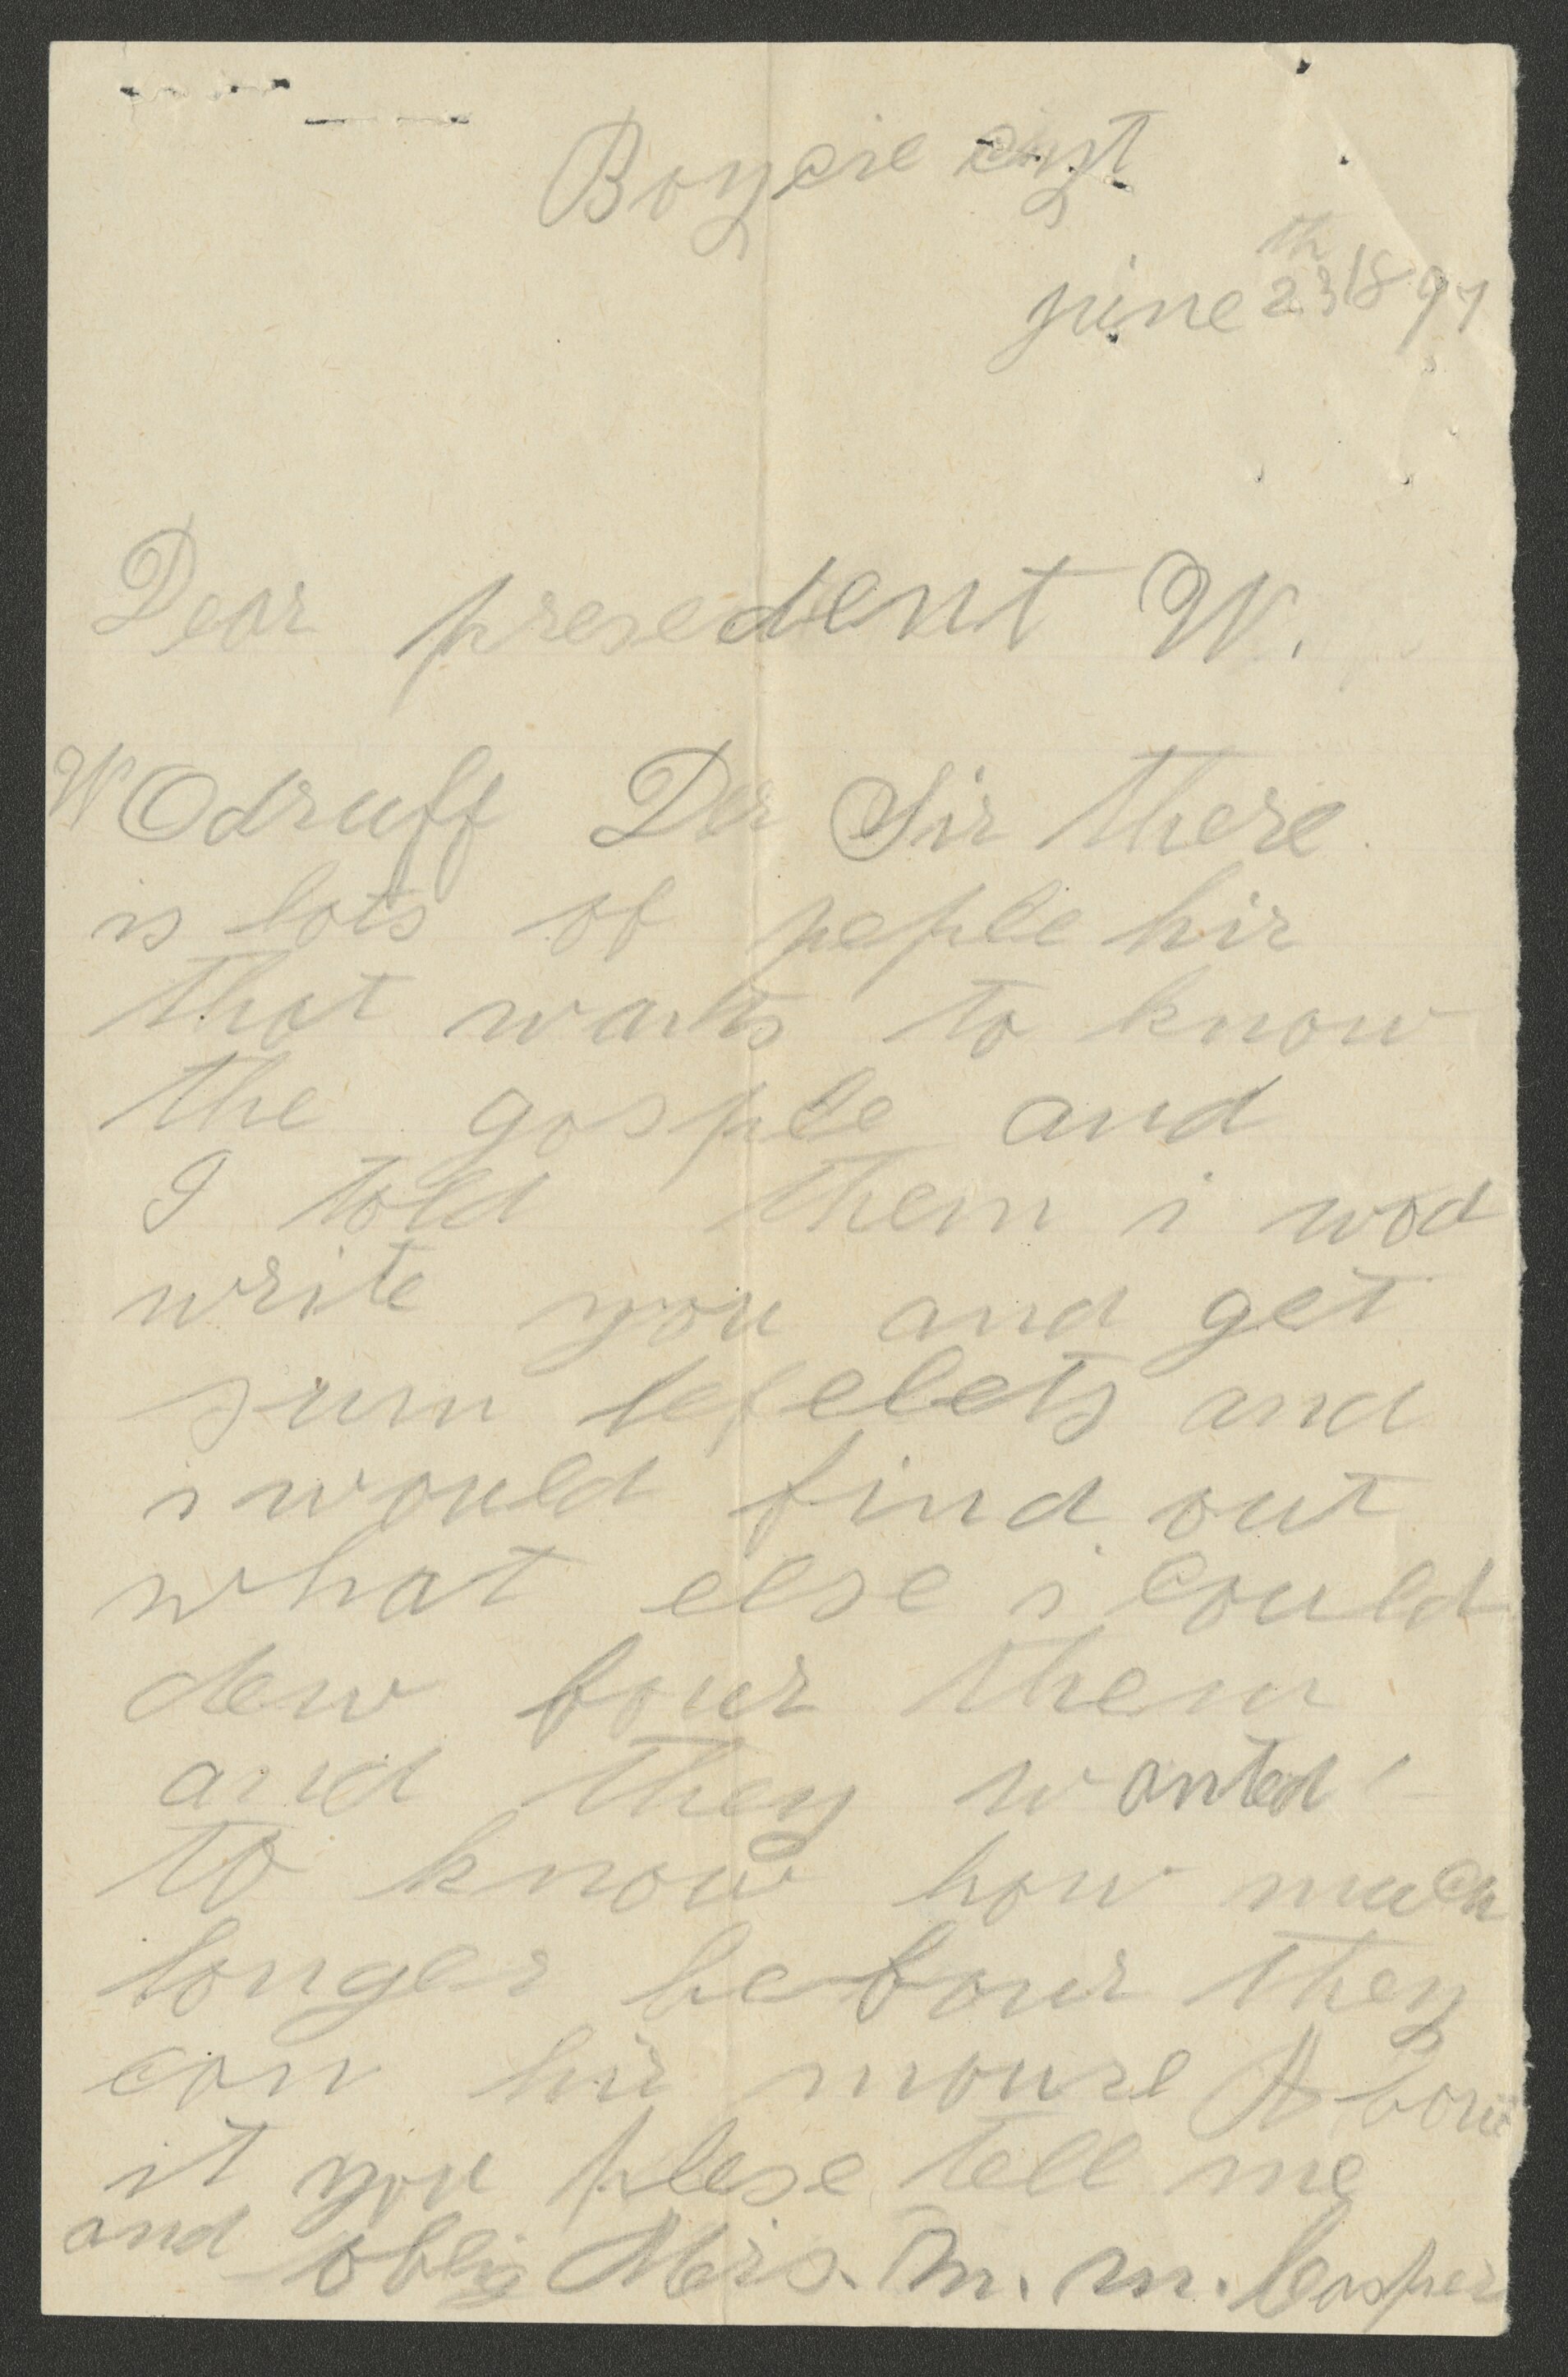 june 23th 1897
Dear presedent W.
WOdruff Der Sir there
is lots of peple hir
that wants to know
the gosple and
I told them i wod
write you and get
sum lefelets and
i would find out
what else i could
dew four them
and they wanted
to know how much
longer befour they
can hir moure A bout
it you plese tell me
and oblig Mrs. M. M. Casper